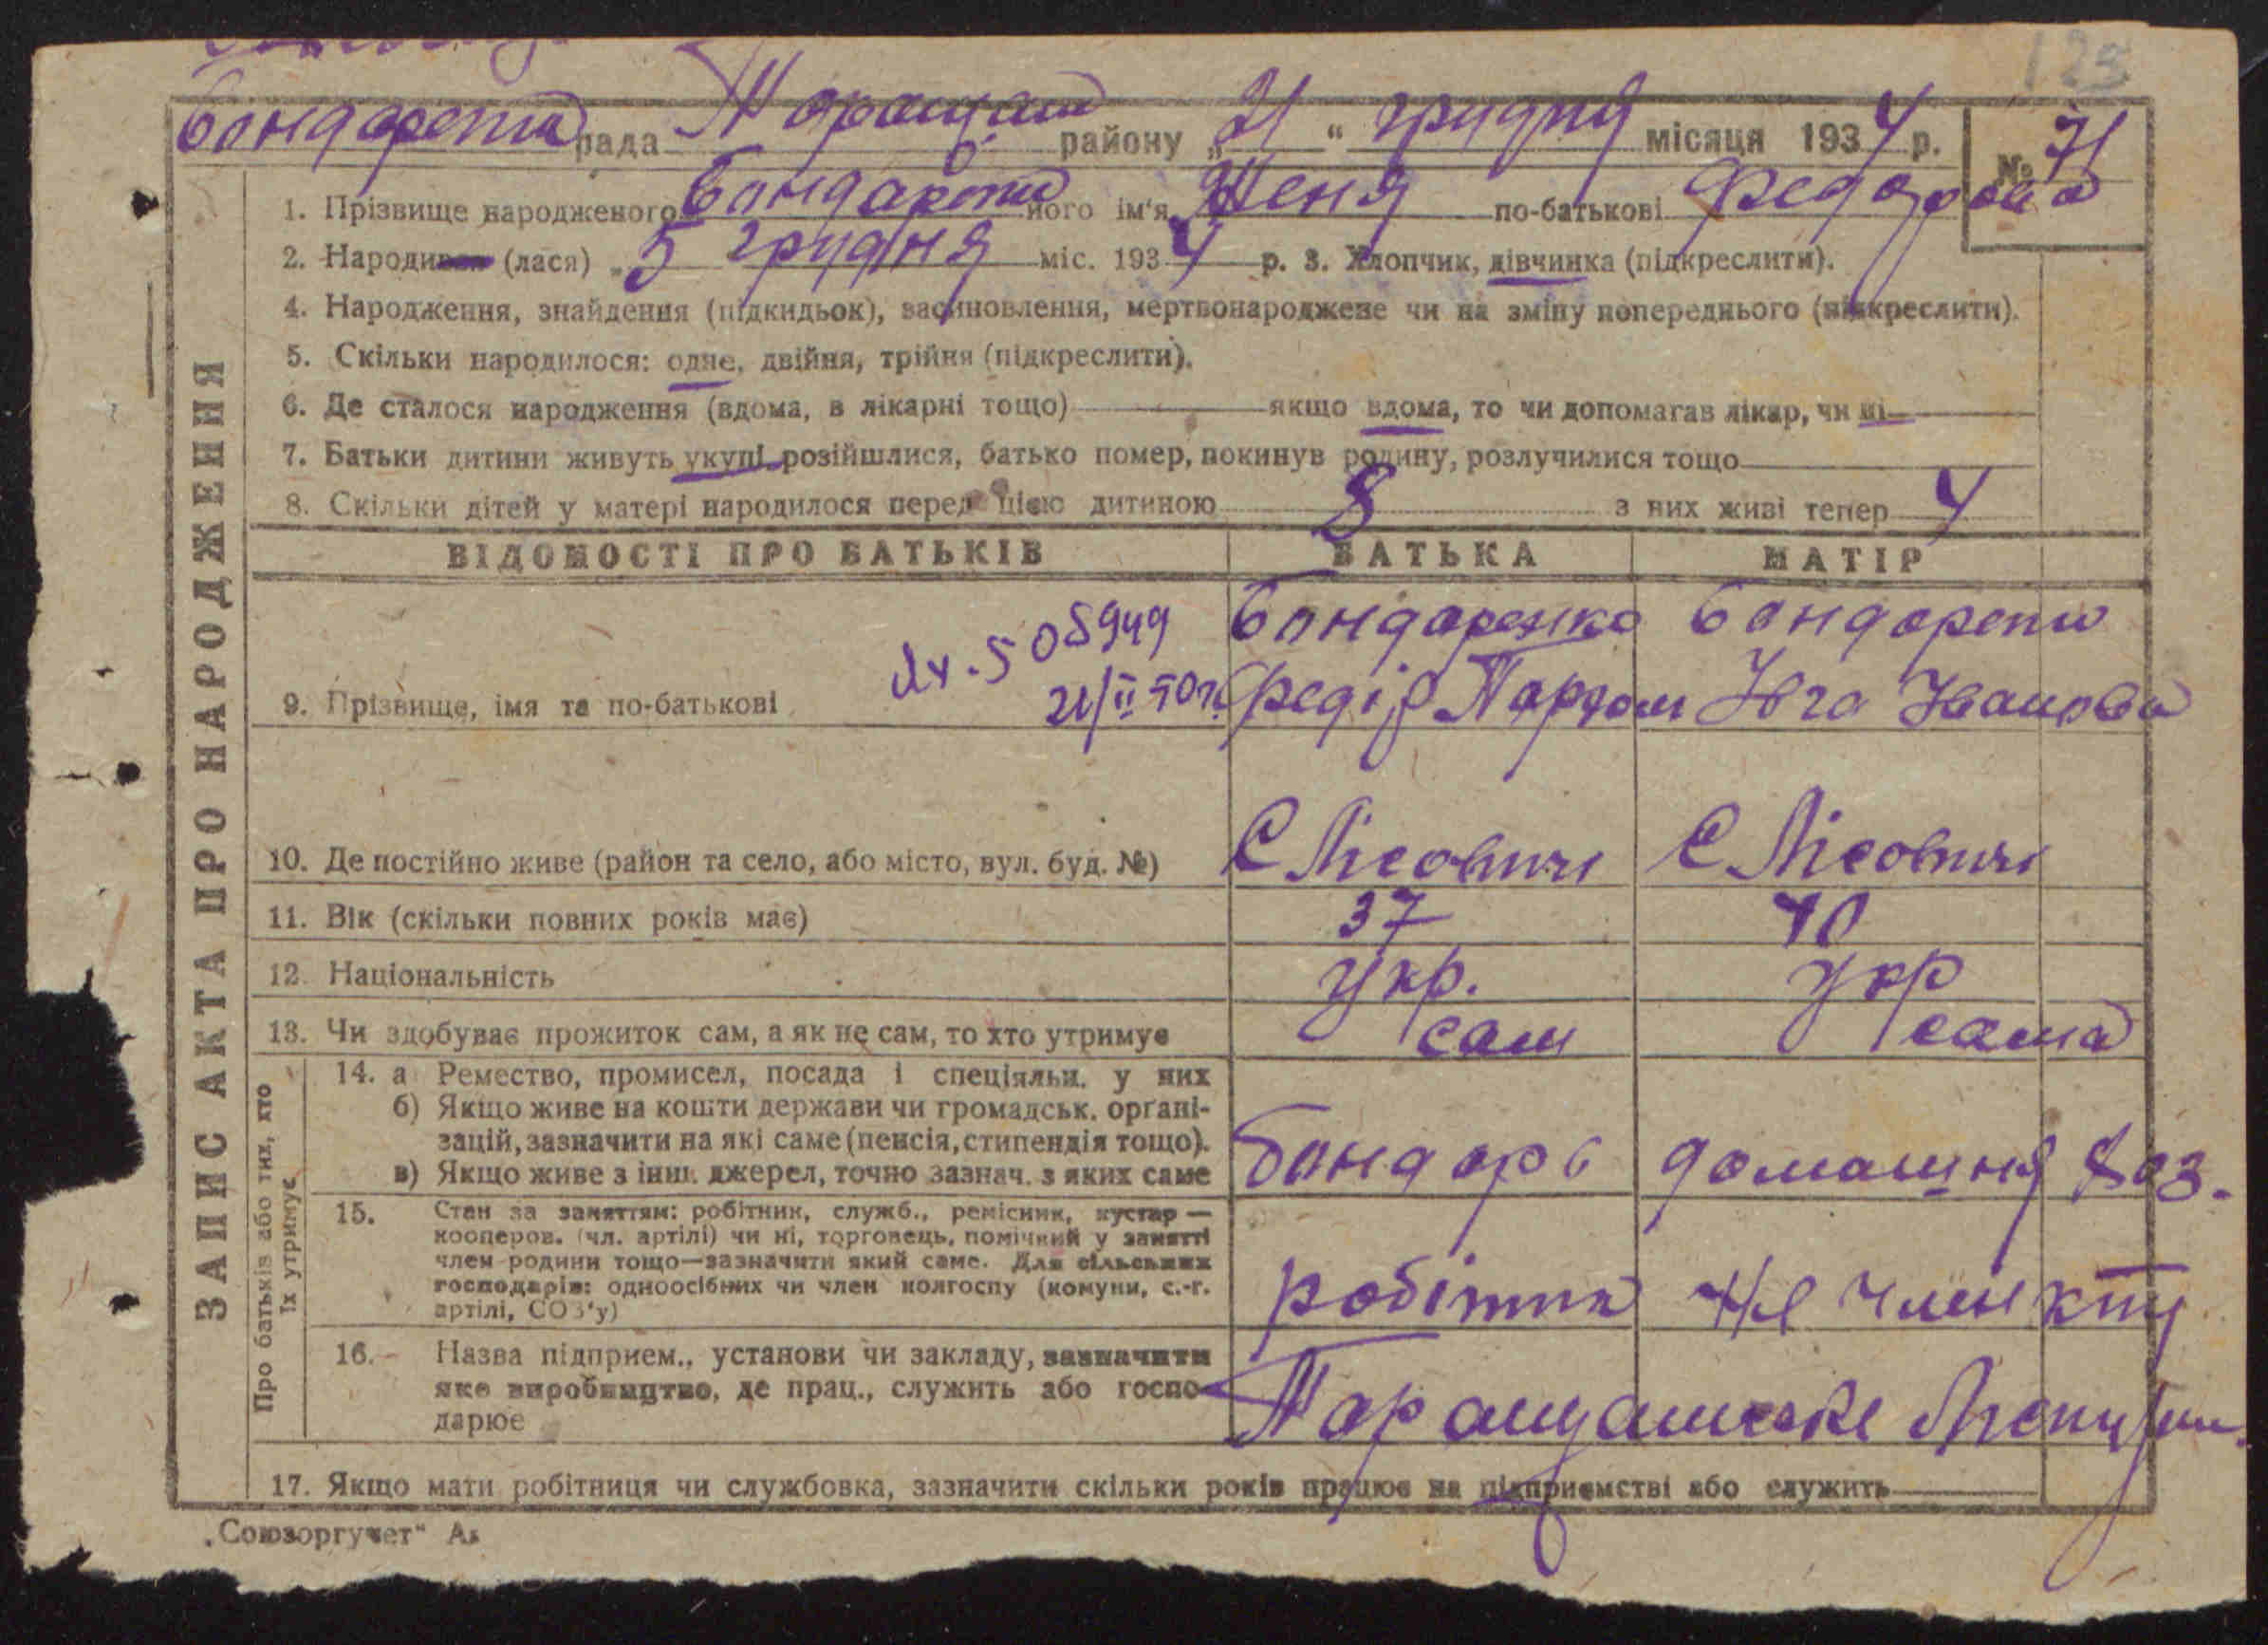 123
Бондаренко рада Таращан району „21" грудня місяця 1934 р. № 71
1. Прізвище народженого Бондаренко його ім'я Женя по-батькові Федорова
2. Народився (лася) „5 грудня міс. 1934 р. 3. Хлопчик, дівчинка (підкреслити).
4. Народження, знайдення (підкидьок), засиновлення, мертвонароджене чи на зміну попереднього (підкреслити).
5. Скільки народилося: одне, двійня, трійня (підкреслити).
6. Де сталося народження (вдома, в лікарні тощо) якщо вдома, то чи допомагав лікар, чи ні
7. Батьки дитини живуть укупі розійшлися, батько помер, покинув родину, розлучилися тощо
8. Скільки дітей у матері народилося перед цією дитиною 8 з них живі тепер 4
ЗАПИС АКТА ПРО НАРОДЖЕННЯ
ВІДОМОСТІ ПРО БАТЬКІВ БАТЬКА МАТІР
505949
21/II 50р.
Бондаренко Бондаренко
9. Прізвище, імя та по-батькові Федір Пархом Івга Іванова
10. Де постійно живе (район та село, або місто, вул. буд. №) С Лісовичі С Лісовичі
11. Вік (скільки повних років має) 37 40
12. Національність Укр. Укр
13. Чи здобуває прожиток сам, а як не сам, то хто утримує сам сама
Про батьків або тих, хто їх утримує
14. а Ремество, промисел, посада і спеціяльн. у них
б) Якщо живе на кошти держави чи громадськ. орґані-
зацій, зазначити на які саме (пенсія, стипендія тощо).
в) Якщо живе з інш. джерел, точно зазнач. з яких саме бондарь домашня хоз.
15. Стан за заняттям: робітник, служб., ремісник, кустар —
кооперов. (чл. артілі) чи ні, торговець, помічний у занятті
член родини тощо—зазначити який саме. Для сільських
господарів: одноосібних чи член колгоспу (комуни, с.-г.
артілі, СОЗ'у) робітник не член
16.- Назва підприєм., установи чи закладу, зазначити
яке виробництво, де прац., служить або госпо-
дарює Таращанське
17. Якщо мати робітниця чи службовка, зазначити скільки років працює на підприємстві або служить
„Союзоргучет"